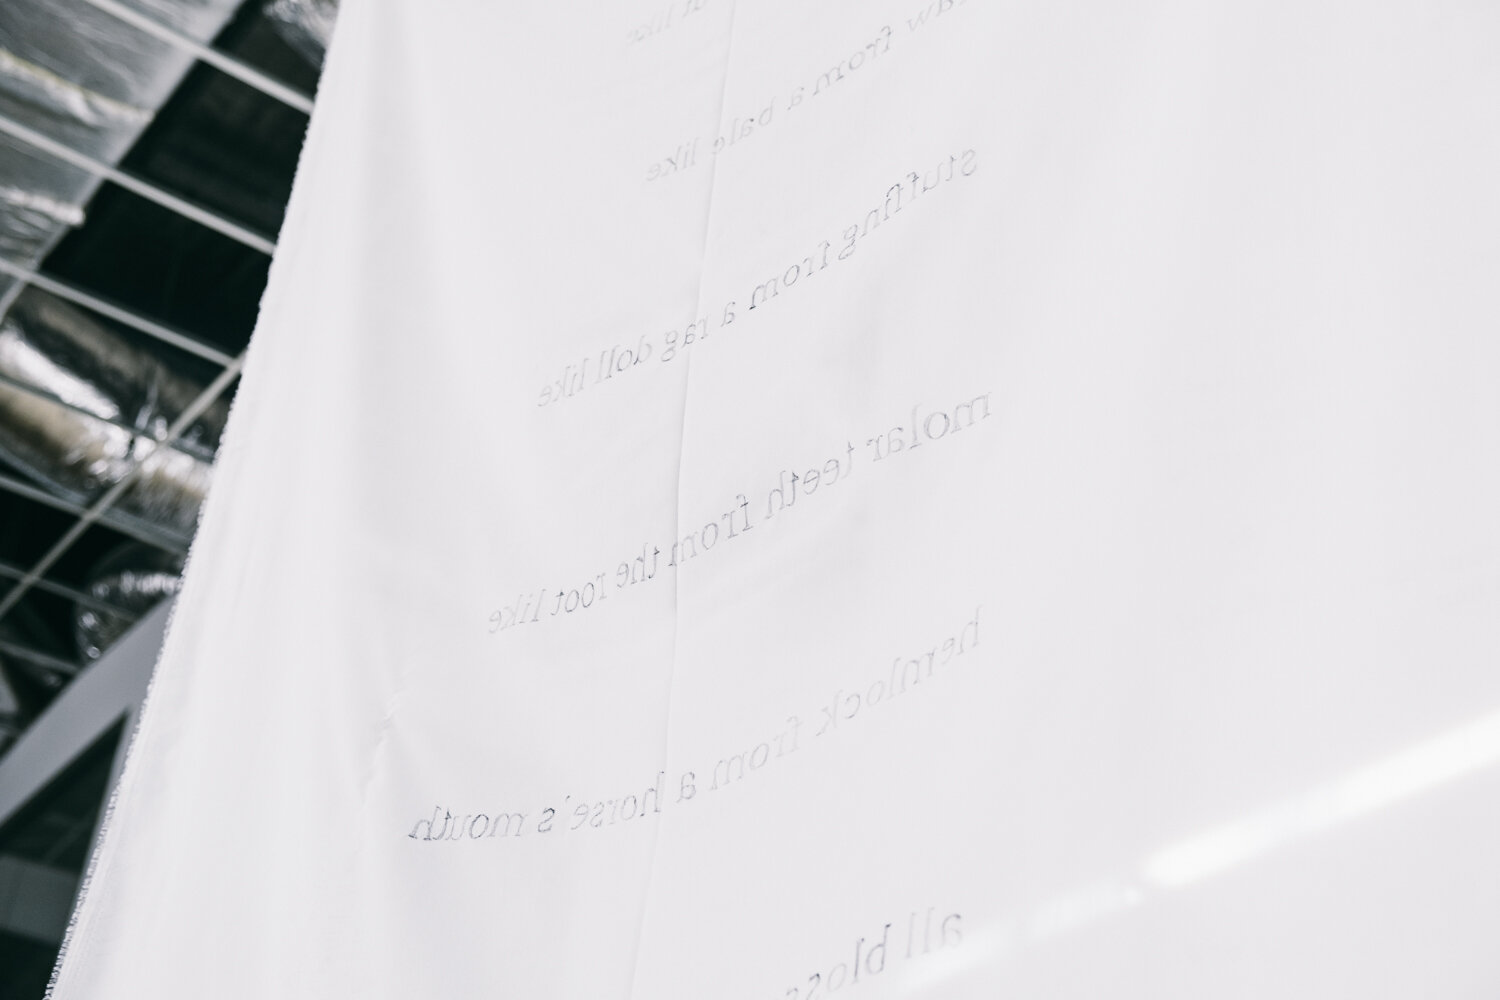 like
from a bale like
stuffing from a rag doll like
molar teeth from the root like
hemlock from a horse's mouth
all